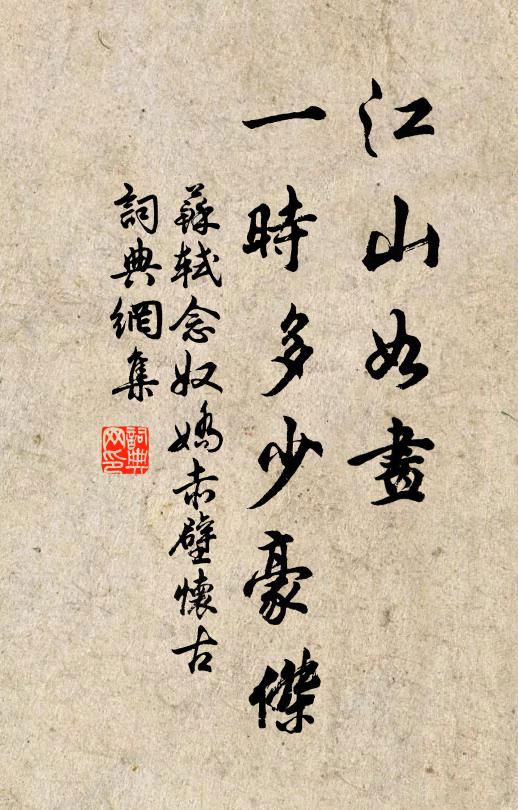 江山如畫
一時多少豪傑
蘇軾念奴嬌赤壁懷古
詞典網集
詞典
网印